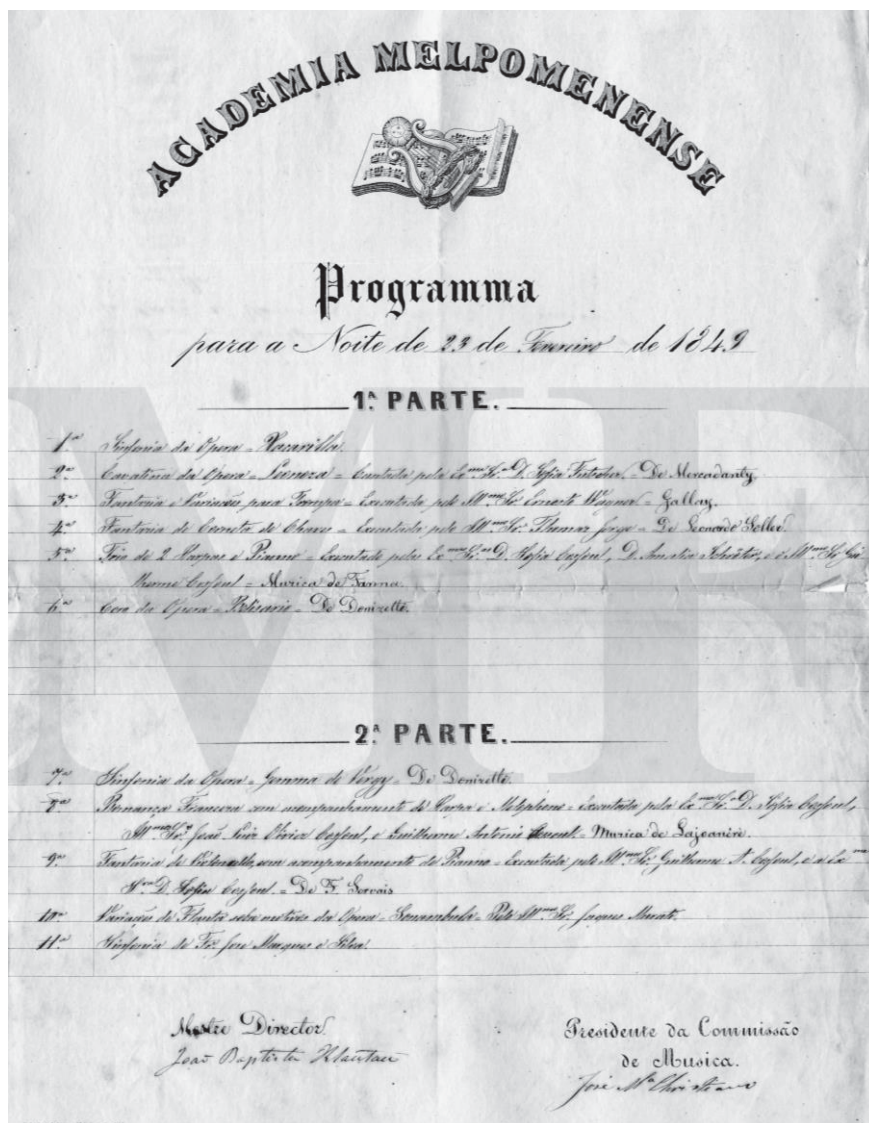 ACADEMIA MELPOMENENSE
Programma
para a Noite de 23 de Fevereiro de 1849
1.ª PARTE.
1.ª Sinfonia da Opera =
2.ª Cavatina da Opera = = Cantada pela Ex.ma Sr.ª D. Sofia = De Mercadanty
3.ª Fantasia e Variações para Trompa = Executada pelo Ill.mo Sr. Ernesto Wagner = Gallay.
4.ª Fantasia de Corneta de Chaves = Executada pelo Ill.mo Sr. Thomaz Jorge = De Leonardo Soller.
5.ª Trio de 2 Harpas e Pianno = Executado pelas Ex.mas Sr.as D. Sofia Cossoul, D. Amelia e o Ill.mo Sr. Gui
lherme Cossoul = Muzica de
6.ª Coro da Opera = Belisario = De Donizetto.
2.ª PARTE.
7.ª Sinfonia da Opera = Gemma de Vergy = De Donizetto.
8.ª Romanza Franceza com acompanhamento de Harpa e Melophone = Executada pela Ex.ma Sr.ª D. Sofia Cossoul,
Ill.mos Sr.es João Luiz Cossoul, e Guilherme Antonio Cossoul = Muzica de
9.ª Fantasia de Violoncello, com acompanhamento de Pianno = Executada pelo Ill.mo Sr. Guilherme A. Cossoul, e a Ex.ma
Sr.ª D. Sofia Cossoul = De F. Servais
10.ª Variações de Flauta sobre motivos da Opera = Sonambula = Pelo Ill.mo Sr. Jaques Murat.
11.ª Sinfonia de Fr. Jose Marques e Silva
Mestre Director Presidente da Commissão
João Baptista de Musica.
José M.ª Christiano